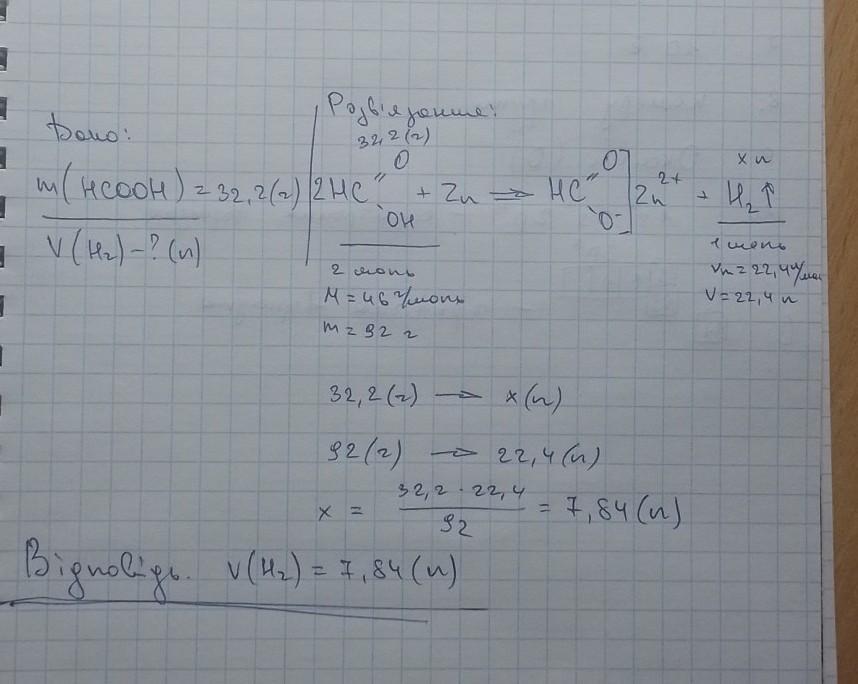 Дано:
m(HCOOH) = 32,2(г)
V(H₂) - ? (л)
Розв'язання:
32,2(г)
x л
2HC
O
OH
+ Zn → HC
O
O⁻
] Zn²⁺ + H₂↑
2 моль
M = 46 г/моль
m = 92 г
1 моль
Vн = 22,4 л/моль
V = 22,4 л
32,2(г) → x(л)
92(г) → 22,4(л)
x = 32,2 · 22,4 / 92 = 7,84(л)
Відповідь. V(H₂) = 7,84(л)